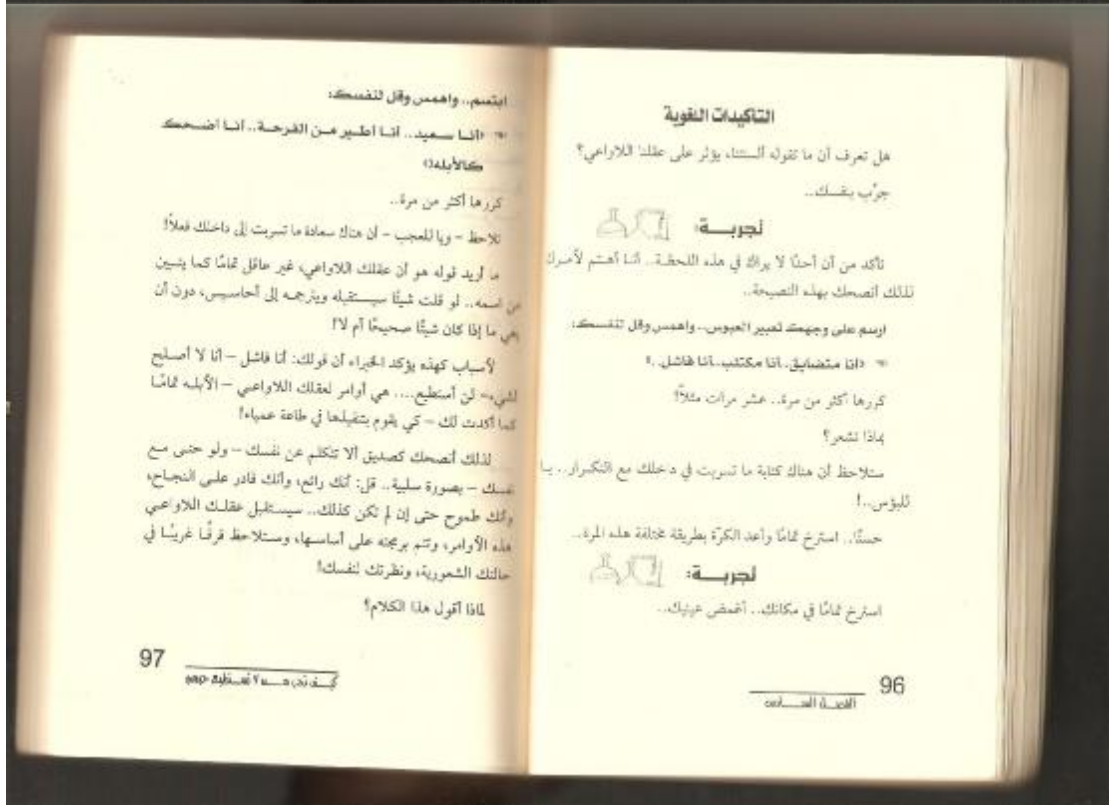 التأكيدات اللغوية
هل تعرف أن ما تقوله ألسنتنا، يؤثر على عقلنا اللاواعي؟
جرِّب بنفسك..
تجربــة:
تأكد من أن أحدًا لا يراك في هذه اللحظة.. أنا أهتم لأمرك
لذلك أنصحك بهذه النصيحة..
ارسم على وجهك تعبير العبوس.. واهمس وقل لنفسك:
«أنا متضايق.. أنا مكتئب.. أنا فاشل..»
كررها أكثر من مرة.. عشر مرات مثلاً!
بماذا تشعر؟
ستلاحظ أن هناك كآبة ما تسربت في داخلك مع التكرار.. يا
للبؤس..!
حسنًا.. استرخ تمامًا وأعد الكرّة بطريقة مختلفة هذه المرة..
تجربــة:
استرخ تمامًا في مكانك.. أغمض عينيك..
96
الفصل السادس
ابتسم.. واهمس وقل لنفسك:
«أنا سعيد.. أنا أطير من الفرحة.. أنا أضحك
كالأبله!»
كررها أكثر من مرة..
تلاحظ – ويا للعجب – أن هناك سعادة ما تسربت إلى داخلك فعلاً!
ما أريد قوله هو أن عقلك اللاواعي، غير عاقل تمامًا كما يتبين
من اسمه.. لو قلت شيئًا سيستقبله ويترجمه إلى أحاسيس، دون أن
يعي ما إذا كان شيئًا صحيحًا أم لا!
لأسباب كهذه يؤكد الخبراء أن قولك: أنا فاشل – أنا لا أصلح
لشيء – لن أستطيع.... هي أوامر لعقلك اللاواعي – الأبله تمامًا
كما أكدت لك – كي يقوم بتنفيذها في طاعة عمياء!
لذلك أنصحك كصديق ألا تتكلم عن نفسك – ولو حتى مع
نفسك – بصورة سلبية.. قل: أنك رائع، وأنك قادر على النجاح،
وأنك طموح حتى إن لم تكن كذلك.. سيستقبل عقلك اللاواعي
هذه الأوامر، وتتم برمجته على أساسها، وستلاحظ فرقًا غريبًا في
حالتك الشعورية، ونظرتك لنفسك!
لماذا أقول هذا الكلام؟
97